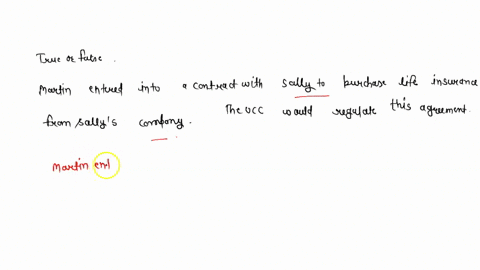 True or false.
Martin entered into a contract with sally to purchase life insurance
from sally's company. The UCC would regulate this agreement.
Martin ent